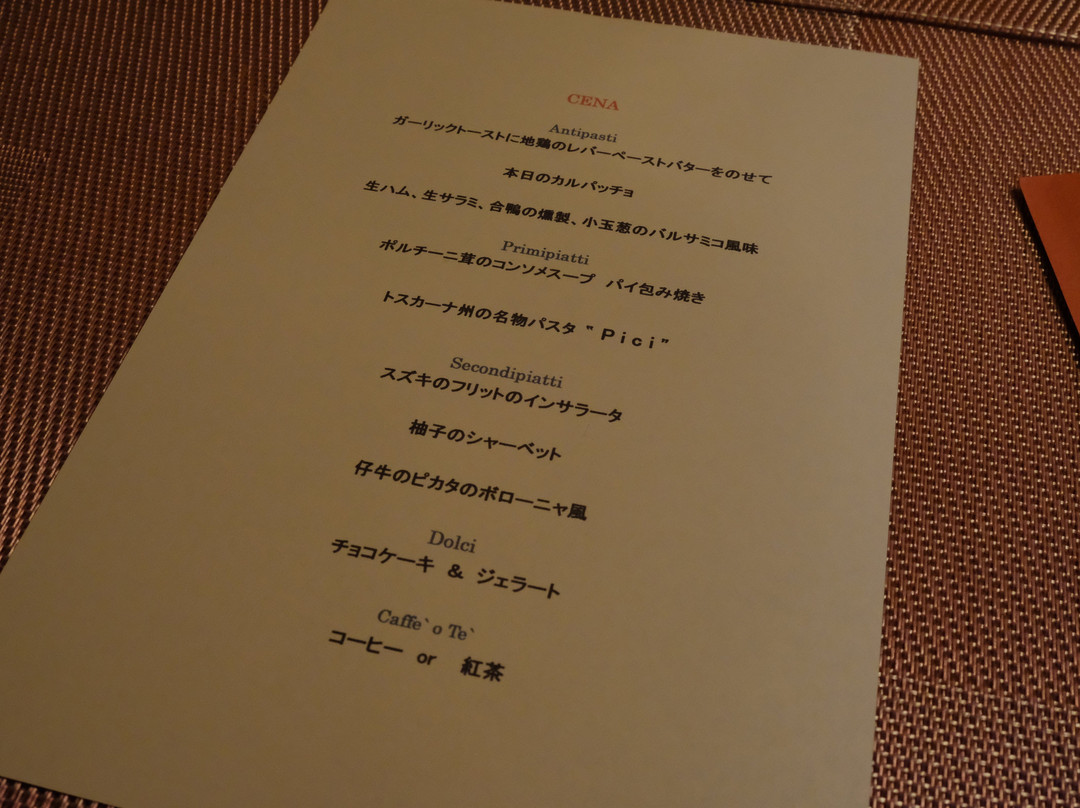 CENA
Antipasti
ガーリックトーストに地鶏のレバーペーストバターをのせて
本日のカルパッチョ
生ハム、生サラミ、合鴨の燻製、小玉葱のバルサミコ風味
Primipiatti
ポルチーニ茸のコンソメスープ　パイ包み焼き
トスカーナ州の名物パスタ "Pici"
Secondipiatti
スズキのフリットのインサラータ
柚子のシャーベット
仔牛のピカタのボローニャ風
Dolci
チョコケーキ ＆ ジェラート
Caffe` o Te`
コーヒー or 紅茶